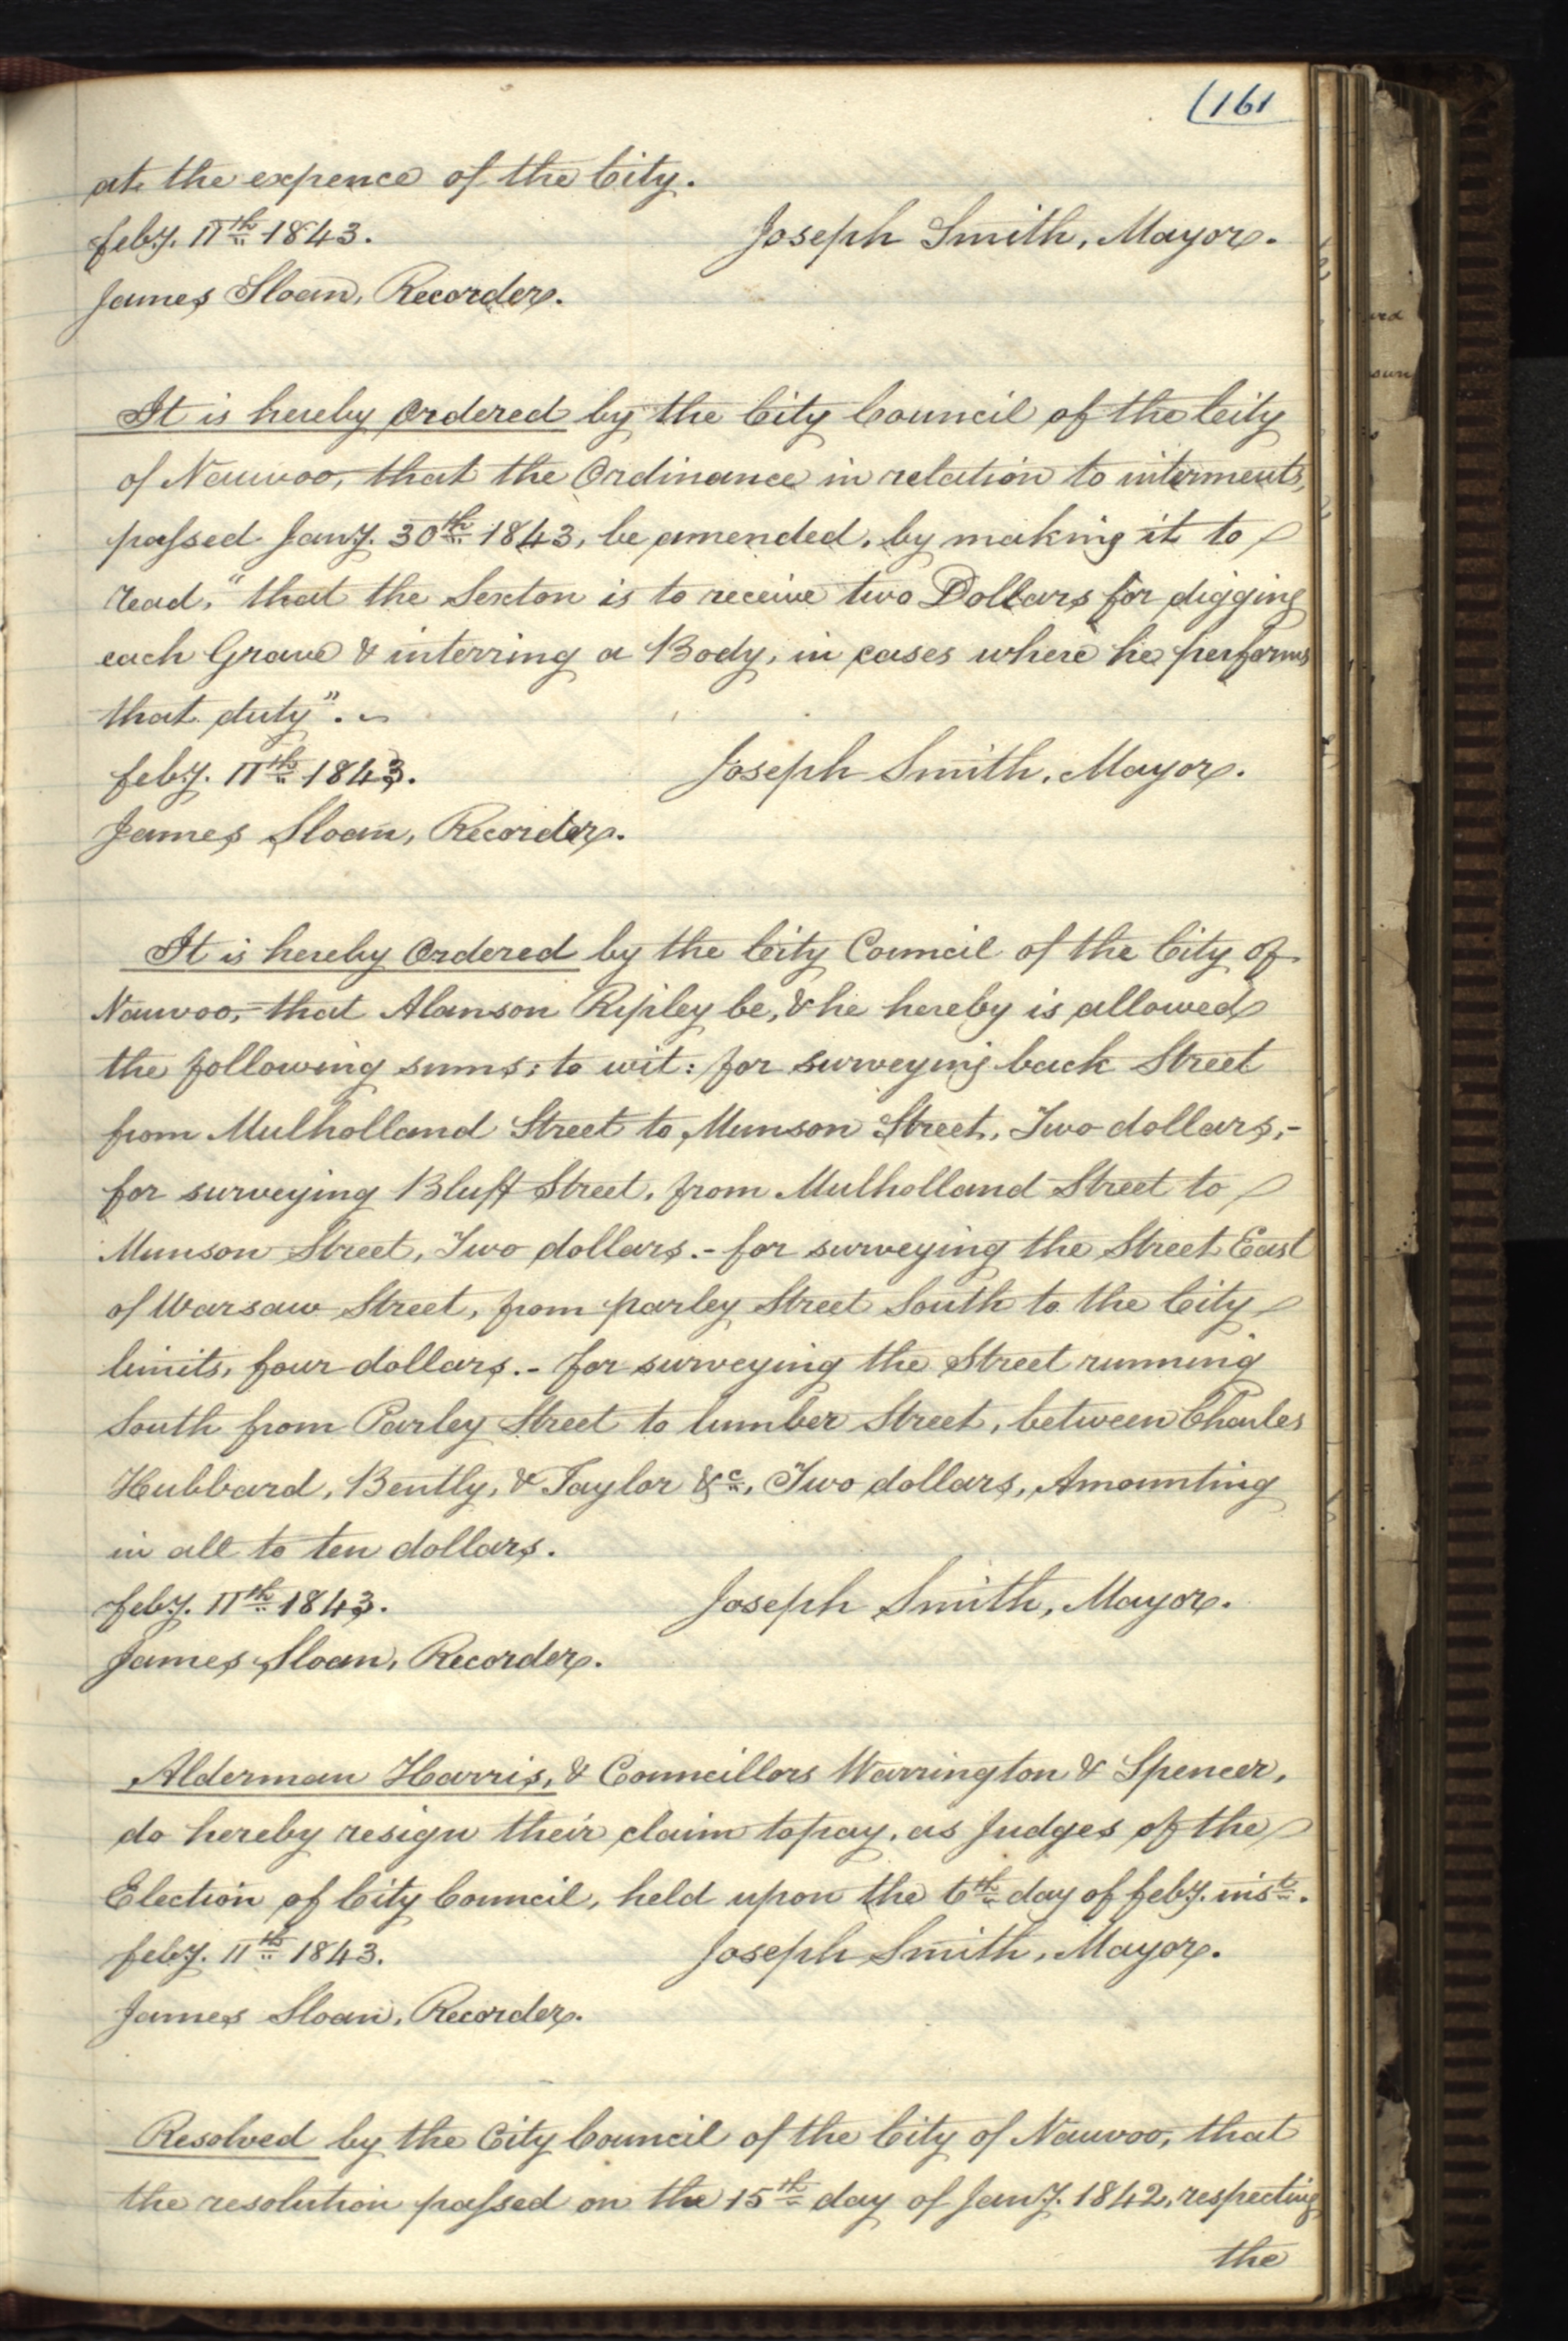 (161
at the expence of the City.
feby. 11th 1843. Joseph Smith, Mayor.
James Sloan, Recorder.
It is hereby Ordered by the City Council of the City
of Nauvoo, that the Ordinance in relation to interments,
passed Jany. 30th 1843, be amended, by making it to
read, "that the Sexton is to receive two Dollars for digging
each Grave & interring a Body, in cases where he performs
that duty".
feby. 11th 1843. Joseph Smith, Mayor.
James Sloan, Recorder.
It is hereby Ordered by the City Council of the City of
Nauvoo, that Alanson Ripley be, & he hereby is allowed
the following sums; to wit: for surveying back Street
from Mulholland Street to Munson Street, Two dollars,-
for surveying Bluff Street, from Mulholland Street to
Munson Street, Two dollars.- for surveying the Street East
of Warsaw Street, from parley Street South to the City
limits, four dollars.- for surveying the Street running
South from Parley Street to lumber Street, between Charles
Hubbard, Bently, & Taylor &c., Two dollars, Amounting
in all to ten dollars.
feby. 11th 1843. Joseph Smith, Mayor.
James Sloan, Recorder.
Alderman Harris, & Councillors Warrington & Spencer,
do hereby resign their claim to pay, as Judges of the
Election of City Council, held upon the 6th day of feby. inst.
feby. 11th 1843. Joseph Smith, Mayor.
James Sloan, Recorder.
Resolved by the City Council of the City of Nauvoo, that
the resolution passed on the 15th day of Jany. 1842, respecting
the